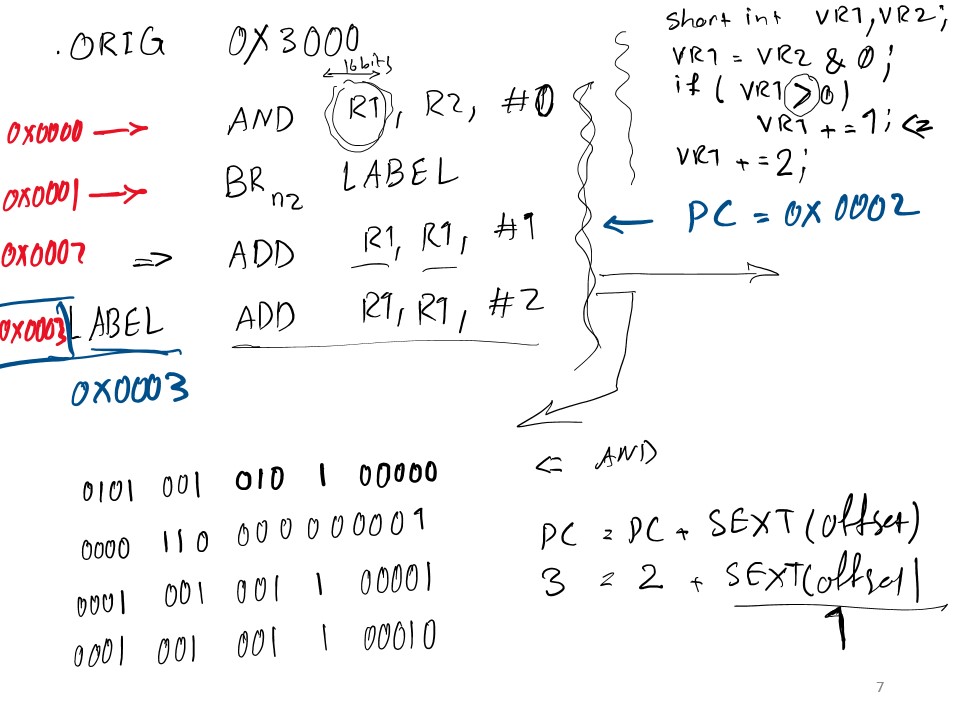 .ORIG 0X3000
16bits
0X0000 → AND R1, R2, #0
0X0001 → BRnz LABEL
0X0002 => ADD R1, R1, #1
0X0003 LABEL ADD R1, R1, #2
0X0003
short int VR1, VR2;
VR1 = VR2 & 0;
if ( VR1 > 0)
VR1 += 1; <=
VR1 += 2;
← PC = 0X0002
0101 001 010 1 00000
0000 110 000000001
0001 001 001 1 00001
0001 001 001 1 00010
<= AND
PC = PC + SEXT(offset)
3 = 2 + SEXT(offset)
1
7